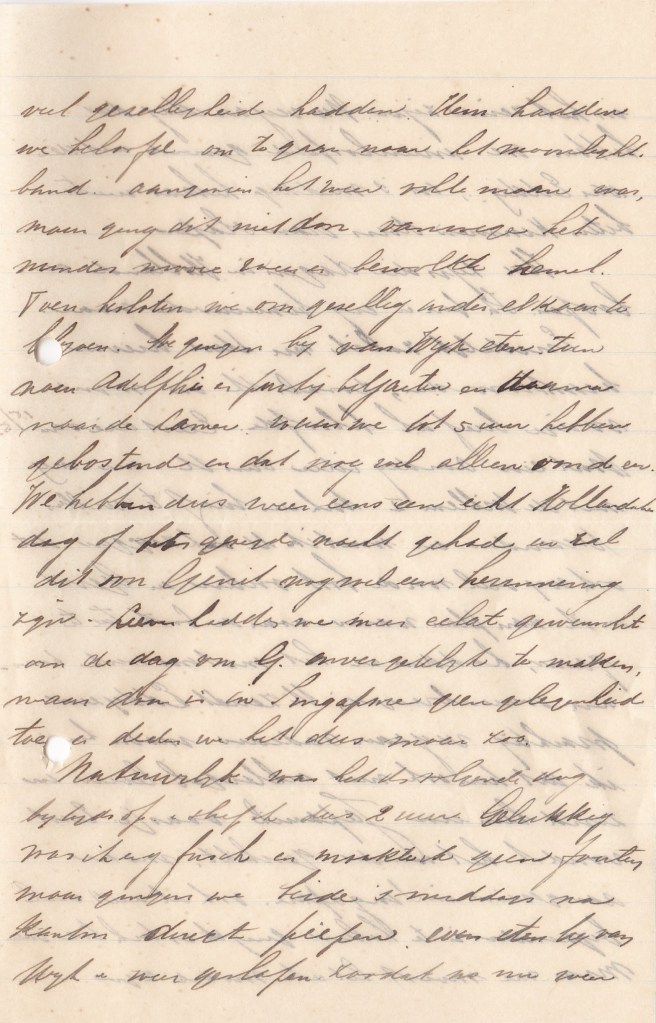 veel gezelligheid hadden. Hein hadden
we beloofd om te gaan naar het moonlight
band. aangezien het weer volle maan was,
maar ging dit niet door vanwege het
minder mooie weer en bewolkte hemel.
Toen besloten we om gezellig onder elkaar te
blijven. We gingen bij van Wijk eten. toen
naar Adelphi en partij biljarten en daarna
naar de kamer waar we tot 5 uur hebben
en dat nog wel alleen
We hebben dus weer eens een echt Hollandse
dag of nacht gehad en zal
dit voor Gerrit nog wel een herinnering
zijn. Liever hadden we meer eclat gewenscht
om de dag van G. onvergetelijk te maken,
maar daar is in Singapore geen gelegenheid
toe en deden we het dus maar zoo.
Natuurlijk was het de volgende dag
bijtijds op en sliep ik dus 2 uur. Gelukkig
was ik erg frisch en maakte ik geen fouten
maar gingen we beide 's middags na
kantoor direct even eten bij van
Wijk en weer geslapen zoodat we nu weer